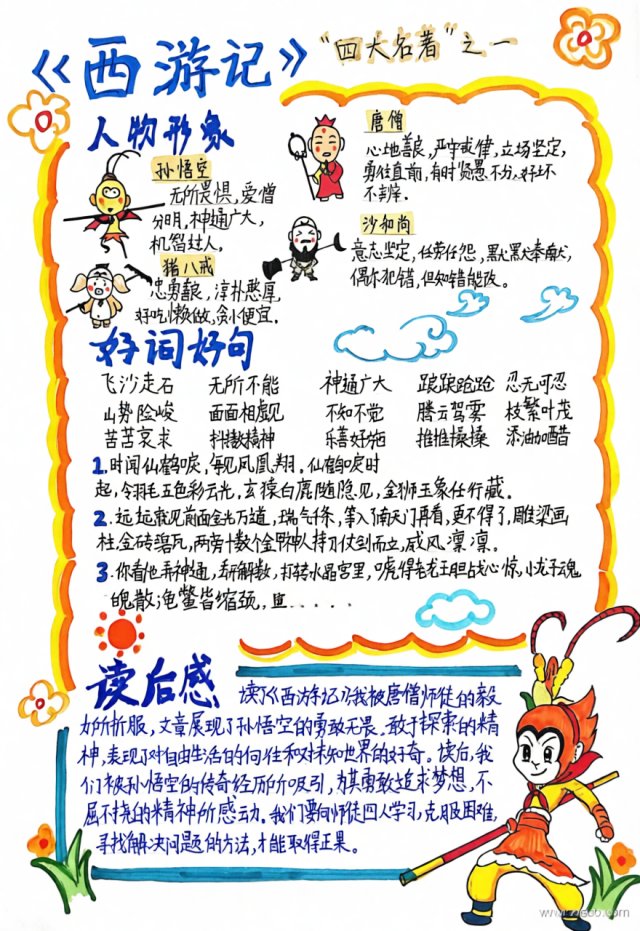 《西游记》
"四大名著"之一
人物形象
孙悟空
无所畏惧，爱憎
分明，神通广大，
机智过人。
唐僧
心地善良，严守戒律，立场坚定，
勇往直前，有时贤愚不分，好坏
不辨。
猪八戒
忠勇善良，淳朴憨厚，
好吃懒做，贪小便宜。
沙和尚
意志坚定，任劳任怨，默默奉献，
偶尔犯错，但知错能改。
好词好句
飞沙走石 无所不能 神通广大 踉踉跄跄 忍无可忍
山势险峻 面面相觑 不知不觉 腾云驾雾 枝繁叶茂
苦苦哀求 抖擞精神 乐善好施 推推搡搡 添油加醋
1.时闻仙鹤唳，每见凤凰翔。仙鹤唳时
起，令羽毛五色彩云光，玄猿白鹿随隐见，金狮玉象任行藏。
2.远远就见前面金光万道，瑞气千条，等入了南天门再看，更不得了，雕梁画
柱，金砖碧瓦，两旁十数个金甲神人持刀仗剑而立，威风凛凛。
3.你看他弄神通，丢解数，打转水晶宫里，唬得老龙王胆战心惊，小龙子魂
魄散，鱼鳖皆缩颈，.....
读后感
读了《西游记》我被唐僧师徒的毅
力所折服，文章展现了孙悟空的勇敢无畏、敢于探索的精
神，表现了对自由生活的向往和对未知世界的好奇。读后，我
们被孙悟空的传奇经历所吸引，为其勇敢追求梦想，不
屈不挠的精神所感动。我们要向师徒四人学习，克服困难，
寻找解决问题的方法，才能取得正果。